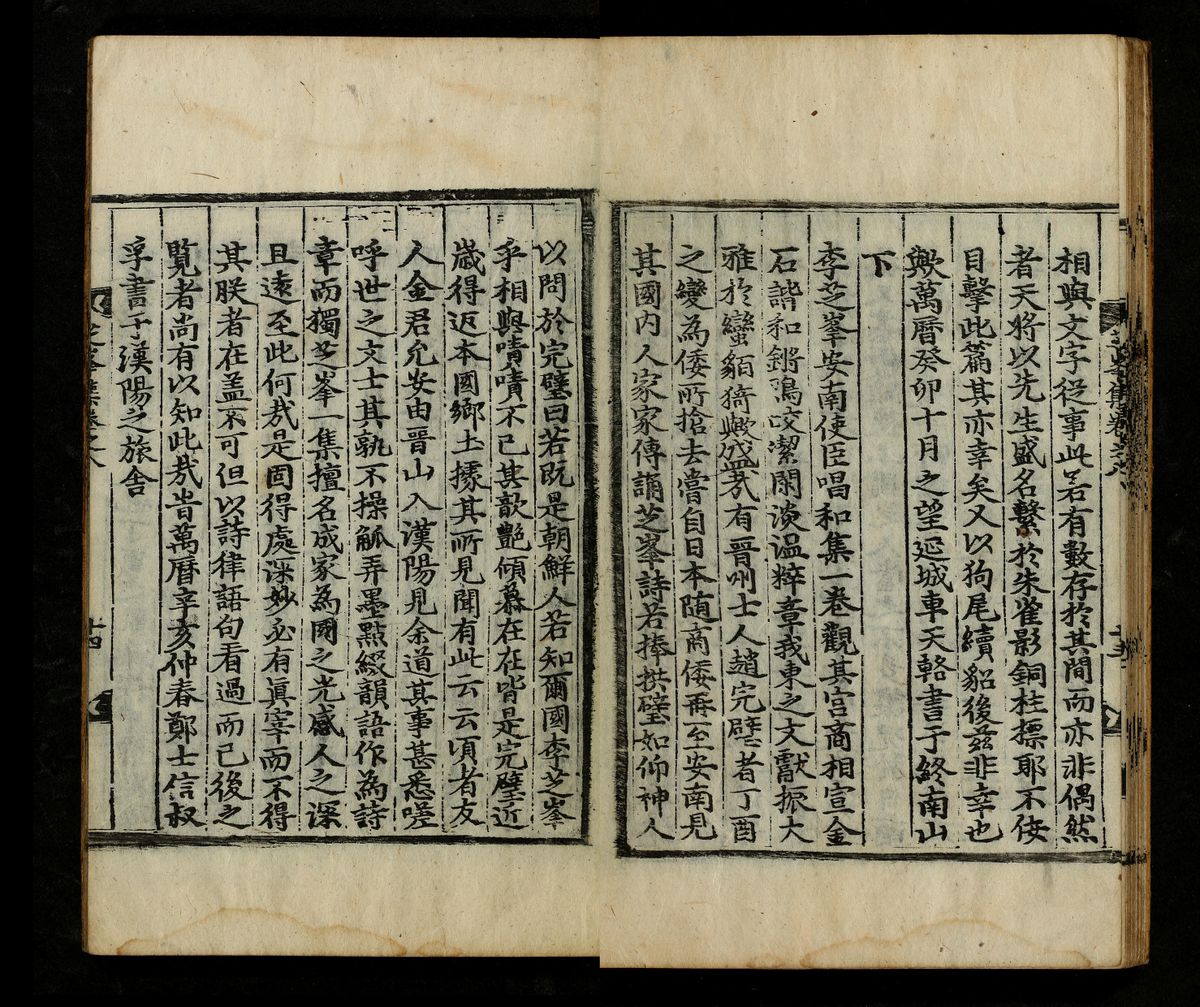 相與文字從事此若有數存於其間而亦非偶然
者天將以先生盛名繫於朱雀影銅柱摽耶不佞
目擊此篇其亦幸矣又以狗尾續貂後玆非幸也
歟萬曆癸卯十月之望延城車天輅書于終南山
下
李芝峯安南使臣唱和集一卷觀其宮商相宣金
石諧和鏘鴻咬潔閑淡温粹章我東之文獻振大
雅於蠻貊猗歟盛㢤有晉州士人趙完璧者丁酉
之變為倭所搶去嘗自日本随商倭再至安南見
其國內人家家傳誦芝峯詩若捧拱璧如仰神人
以問於完璧曰若旣是朝鮮人若知爾國李芝峯
乎相與嘖嘖不已其歆艶傾慕在在皆是完璧近
歲得返本國鄉土據其所見聞有此云云頃者友
人金君允安由晉山入漢陽見余道其事甚悉嗟
呼世之文士其孰不操觚弄墨點綴韻語作為詩
章而獨芝峯一集擅名成家為國之光感人之深
且遠至此何㢤是固得處深妙必有眞宰而不得
其朕者在盖不可但以詩律語句看過而已後之
覽者尚有以知此㢤旹萬曆辛亥仲春鄭士信叔
孚書于漢陽之旅舍